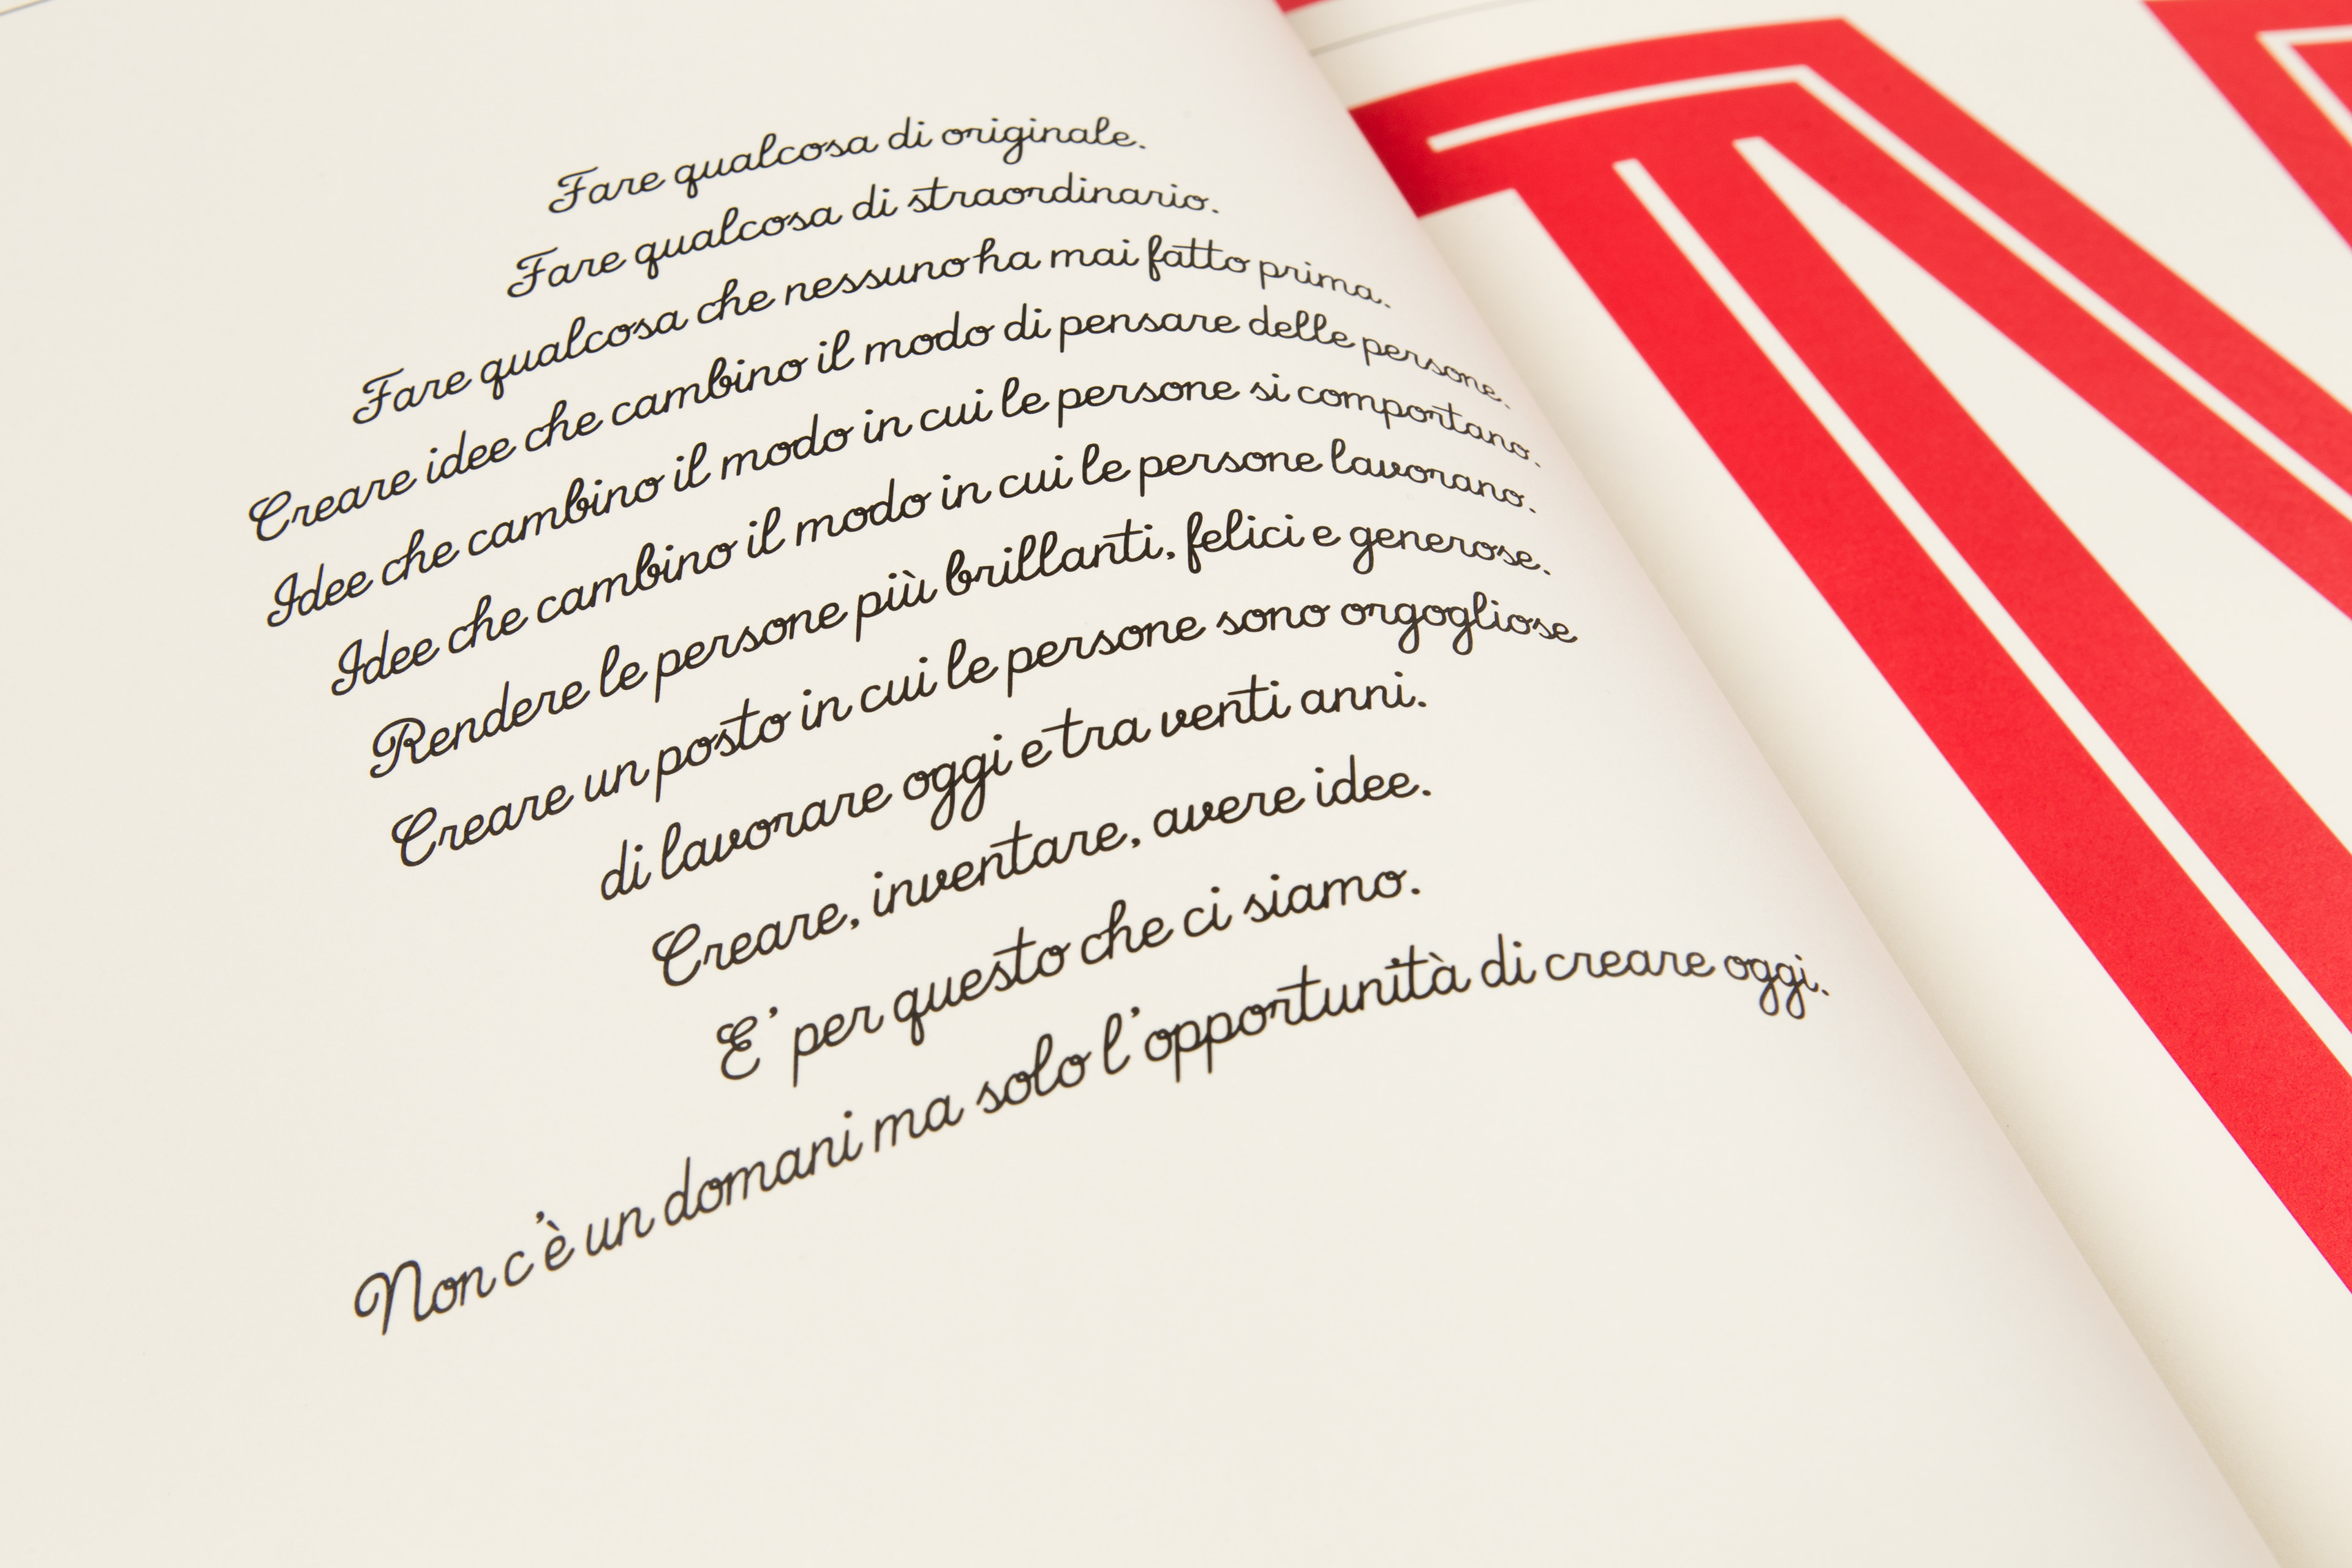 Fare qualcosa di originale.
Fare qualcosa di straordinario.
Fare qualcosa che nessuno ha mai fatto prima.
Creare idee che cambino il modo di pensare delle persone.
Idee che cambino il modo in cui le persone si comportano.
Idee che cambino il modo in cui le persone lavorano.
Rendere le persone più brillanti, felici e generose.
Creare un posto in cui le persone sono orgogliose
di lavorare oggi e tra venti anni.
Creare, inventare, avere idee.
E' per questo che ci siamo.
Non c'è un domani ma solo l'opportunità di creare oggi.